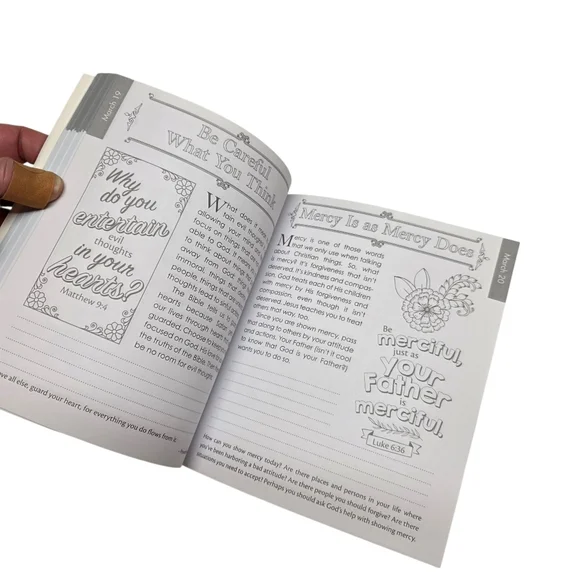 March 19
Be Careful
What You Think
Why
do you
entertain
evil
thoughts
in your
hearts?
Matthew 9:4
What does it mean
tain evil thoughts
allowing your mind
focus on things that
able to God. It might
to think about
away from God,
immoral, things that
people, things that are
thoughts lead to
The Bible tells
hearts because
our lives through
guarded. Choose to keep
focused on God, His love
the truths of the Bible.
be no room for evil thoughts.
ve all else, guard your heart, for everything you do flows from it.
Mercy Is as Mercy Does
March 20
Mercy is one of those words
that we only use when talking
about Christian things. So, what
is mercy? It's forgiveness that isn't
deserved. It's kindness and compas-
sion. God treats each of His children
with mercy by His forgiveness and
compassion, even though it isn't
deserved. Jesus teaches you to treat
others that way, too.
Since you are shown mercy, pass
that along to others by your attitude
and actions. Your Father (isn't it cool
to know that God is your Father?)
wants you to do so.
Be
merciful,
just as
your
Father
is
merciful.
Luke 6:36
How can you show mercy today? Are there places and persons in your life where
you've been harboring a bad attitude? Are there people you should forgive? Are there
situations you need to accept? Perhaps you should ask God's help with showing mercy.